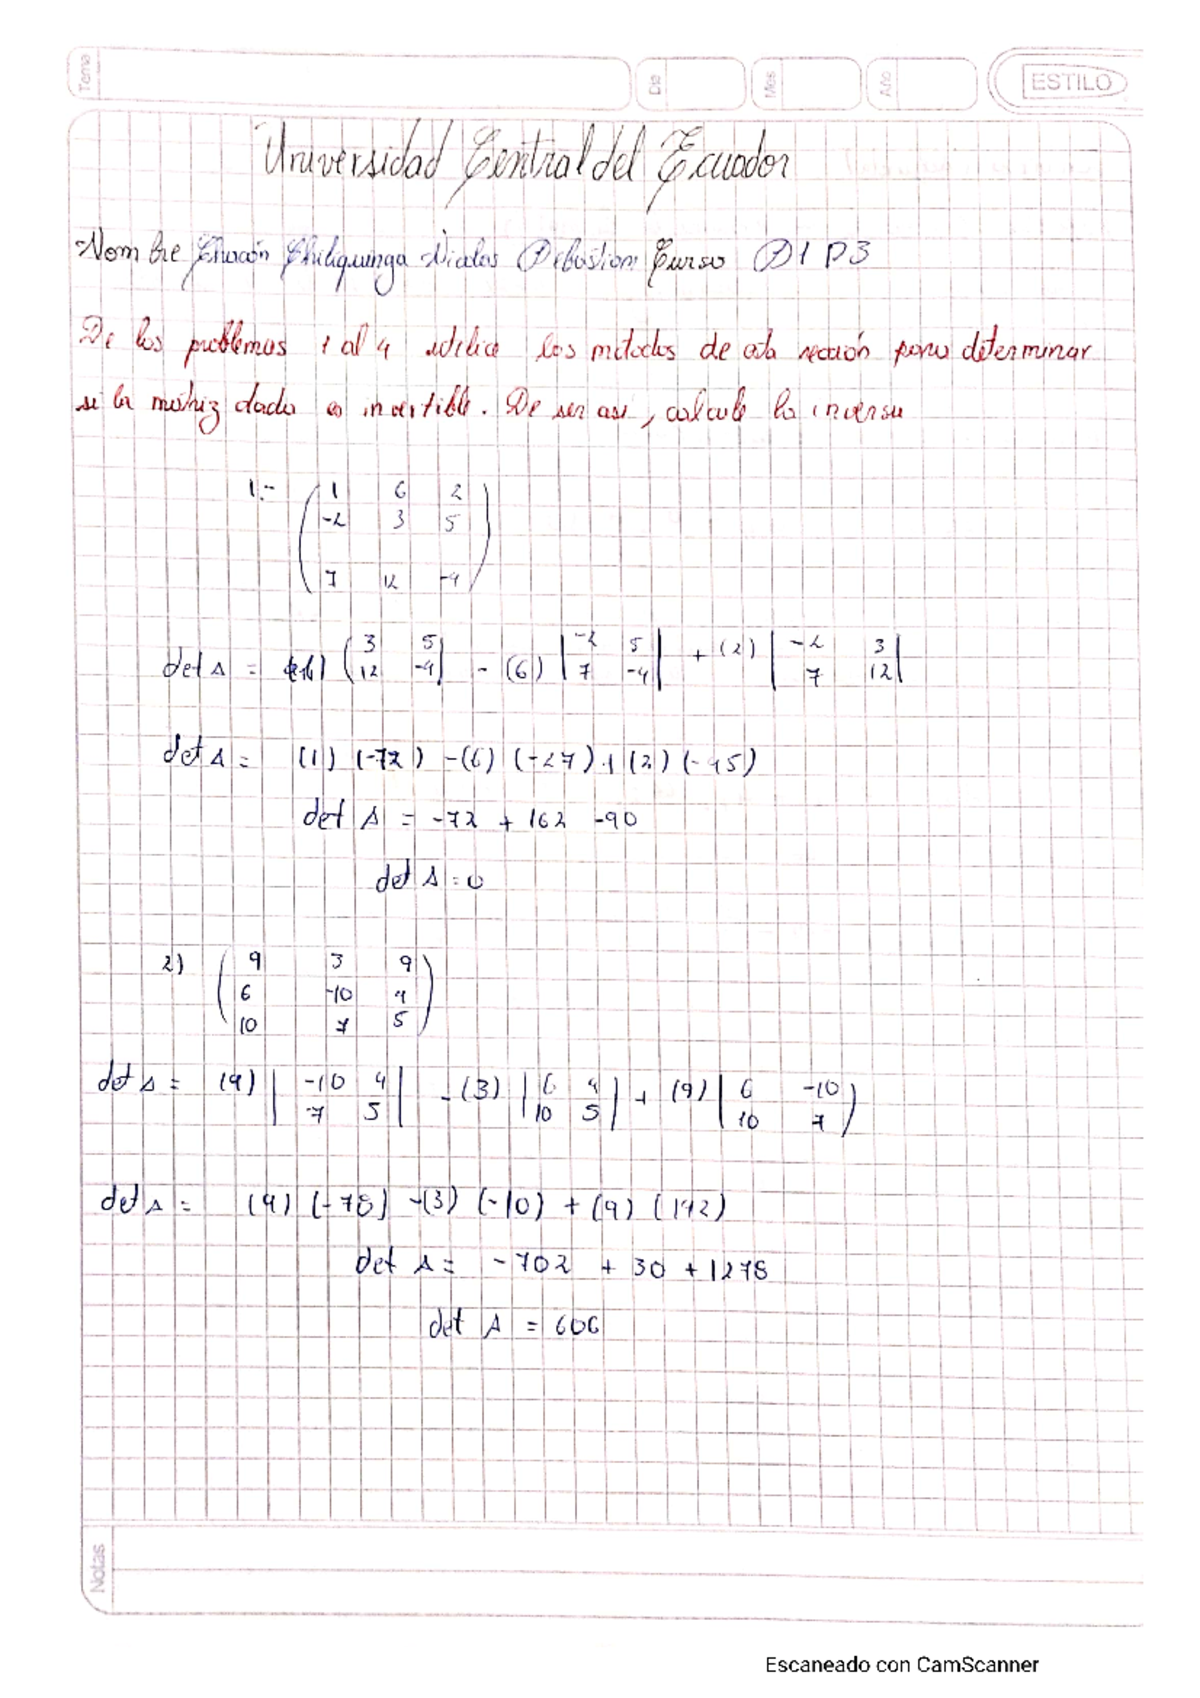 Tema
Dia
Mes
Año
ESTILO
Universidad Central del Ecuador
Nombre Chacón Chiliquinga Nicolas Sebastian Curso S1 P3
De los problemas 1 al 4 utilice los métodos de esta sección para determinar
si la matriz dada es invertible. De ser asi, calcule la inversa
1.- ( 1 6 2
-2 3 5
7 12 -4 )
det A = (1) ( 3 5 | - (6) | -2 5 | + (2) | -2 3 |
12 -4 7 -4 7 12
det A = (1) (-72) -(6) (-27) + (2) (-45)
det A = -72 + 162 -90
det A = 0
2) ( 9 3 9
6 -10 4
10 7 5 )
det A = (9) | -10 4 | - (3) | 6 4 | + (9) | 6 -10 )
7 5 10 5 10 7
det A = (9) (-78) -(3) (-10) + (9) (142)
det A = -702 + 30 + 1278
det A = 606
Notas
Escaneado con CamScanner